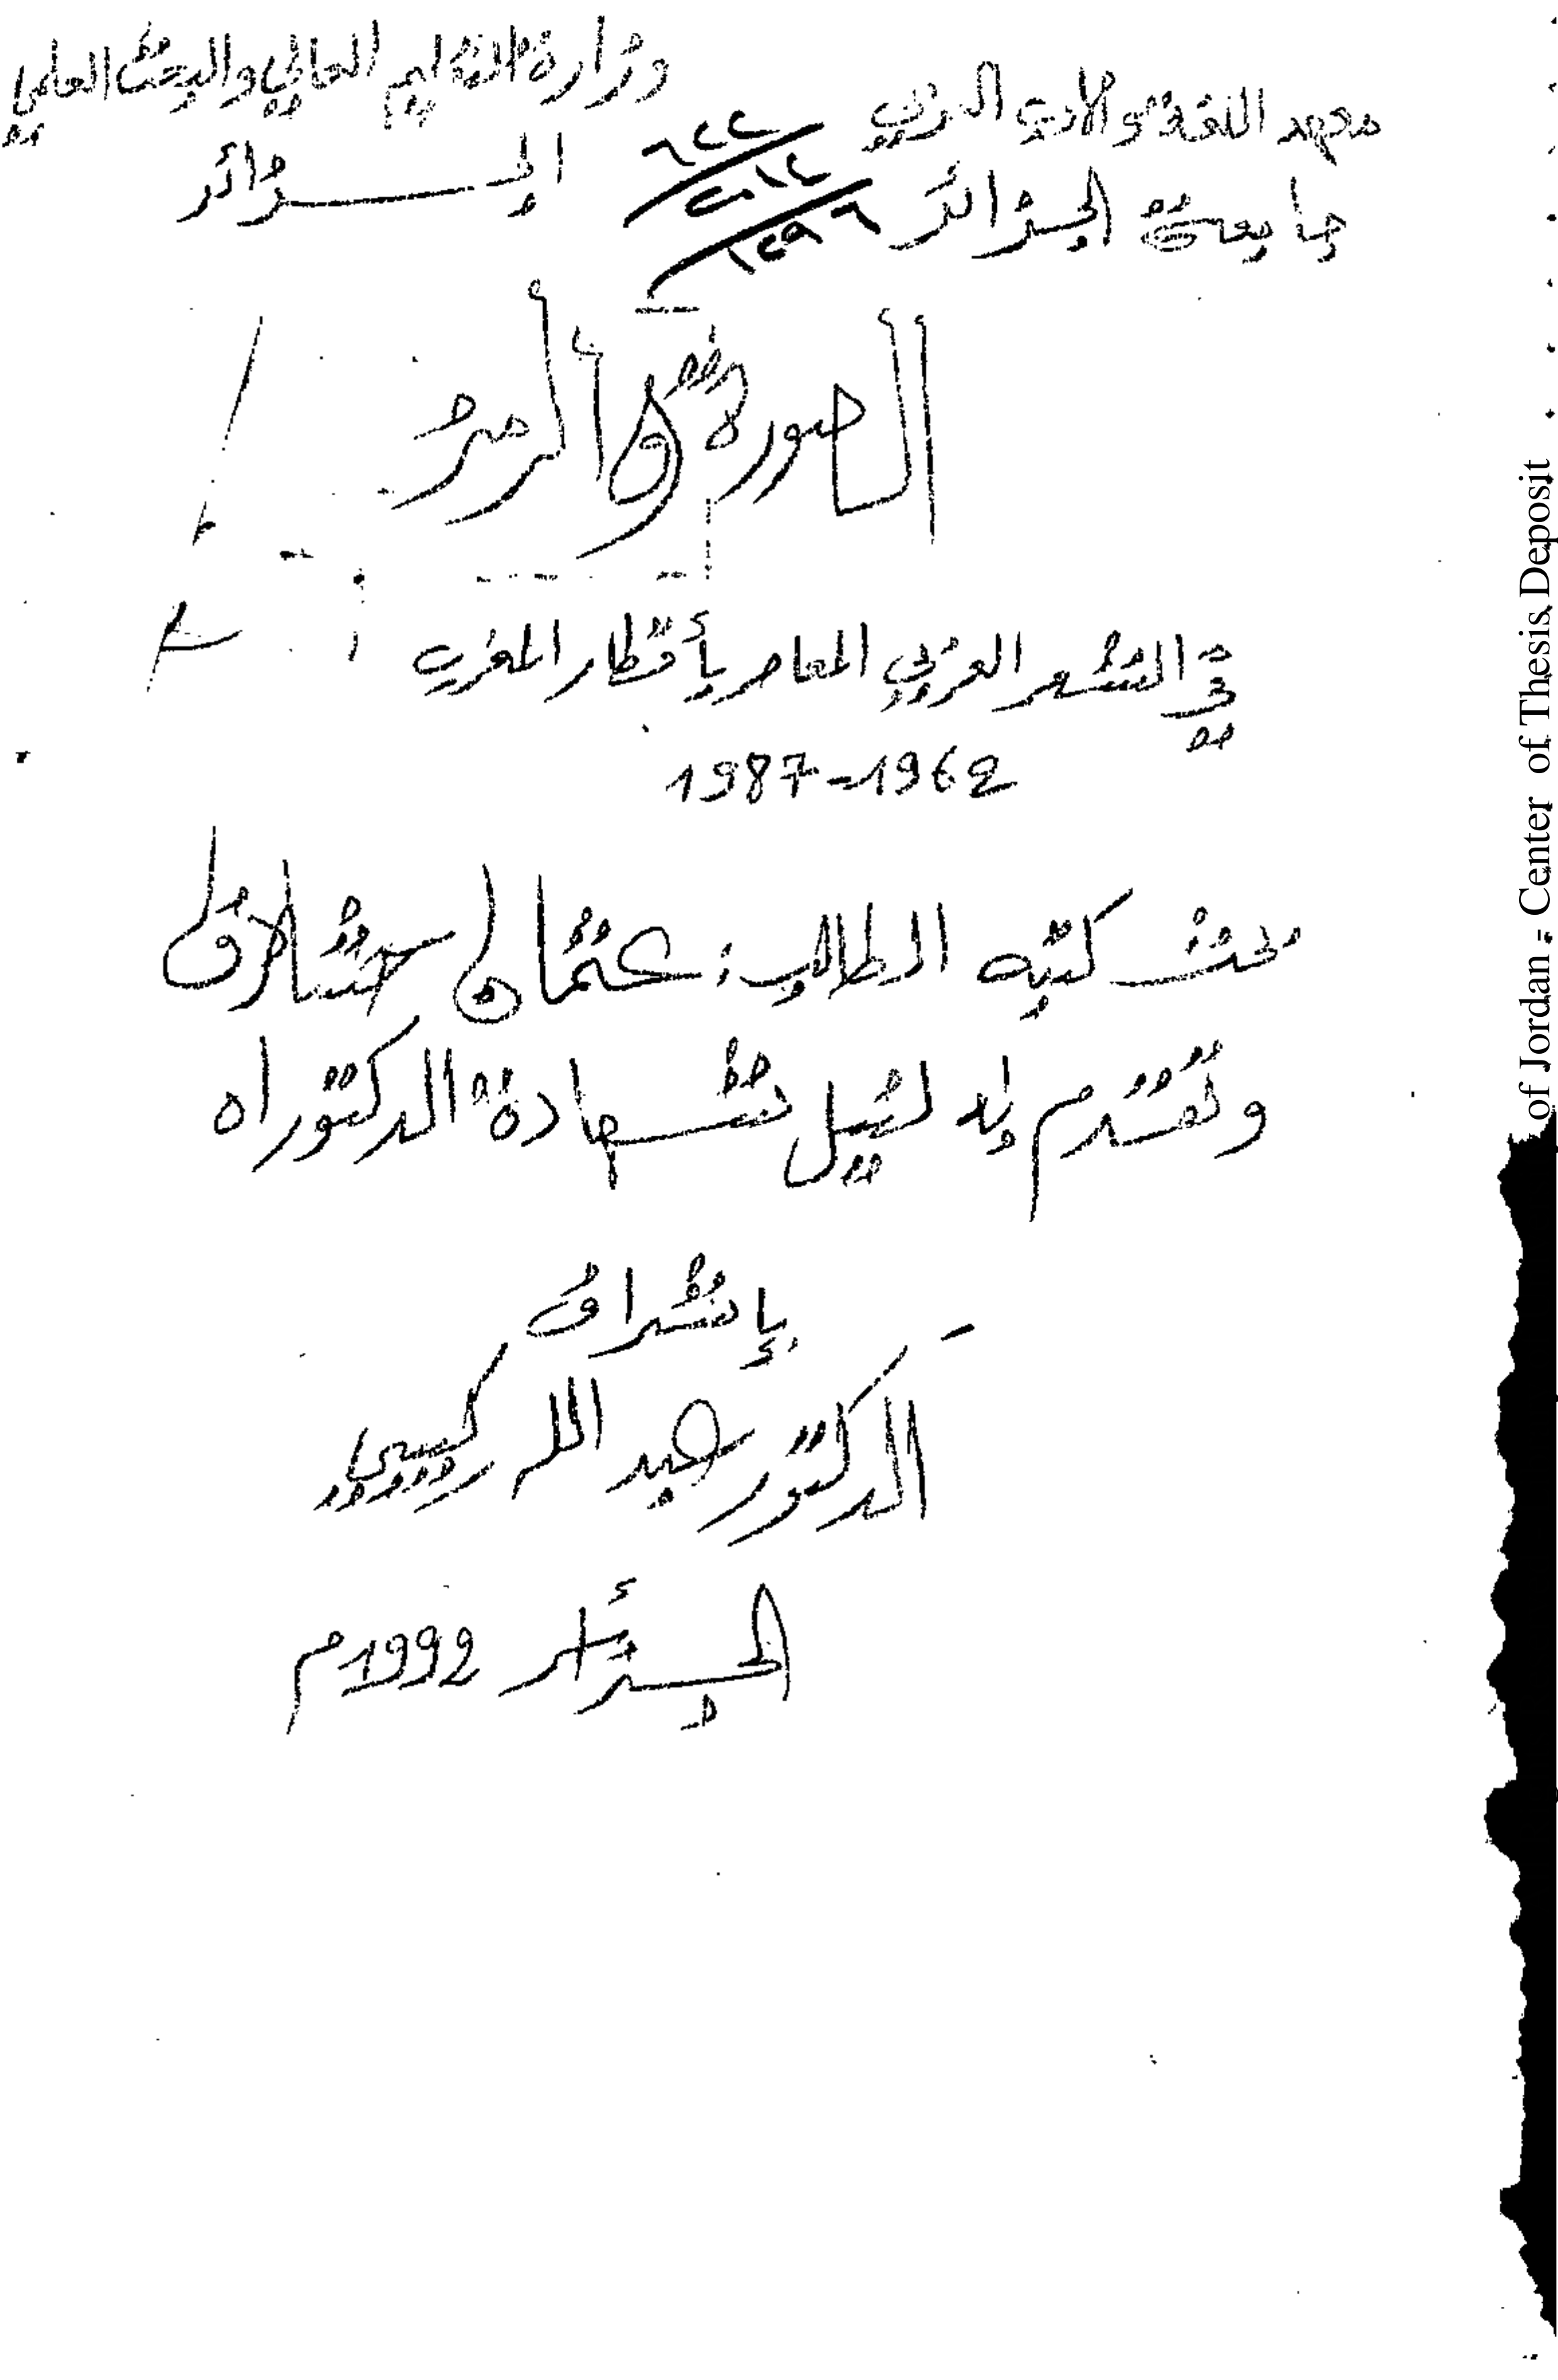 وزارة التعليم العالي والبحث العلمي
الجزائر
معهد اللغة والأدب العربي
جامعة الجزائر
الصورة والرمز
في الشعر العربي المعاصر بأقطار المغرب
1962-1987
بحث كتبه الطالب: عثمان حشلاف
وتقدم به لنيل شهادة الدكتوراه
بإشراف
الدكتور عبد الله ركيبي
الجزائر 1992م
of Jordan - Center of Thesis Deposit